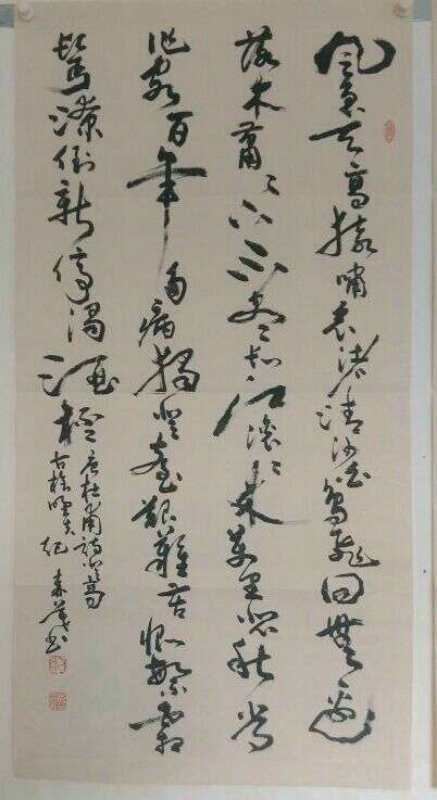 風急天高猿嘯哀渚清沙白鳥飛回無邊
落木蕭〻下不盡長江滾〻來萬里悲秋常
作客百年多病獨登臺艱難苦恨繁霜
鬢潦倒新停濁酒杯
唐杜甫詩登高
书